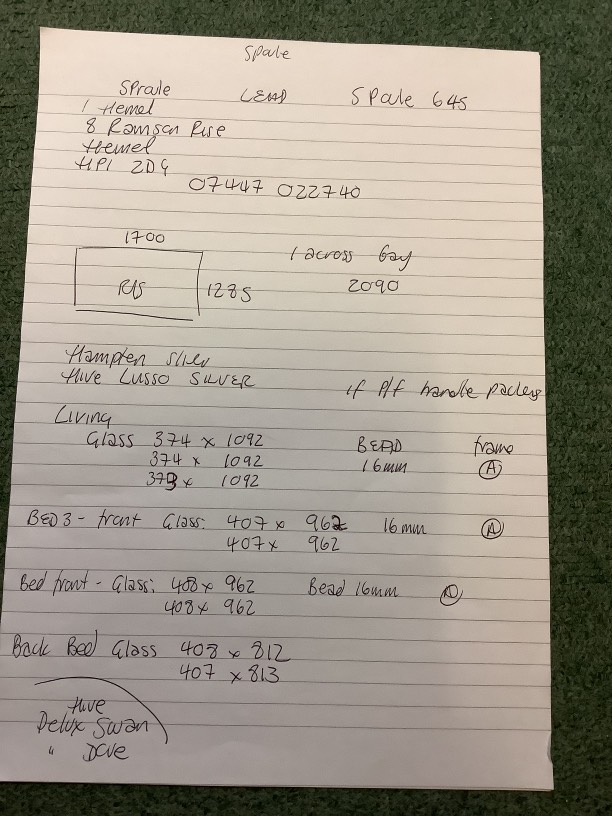 Spale
Sprale LEAD SPale 645
1 Hemel
8 Ramson Rise
Hemel
HP1 2DG
07447 022740
1700
R/S 1285
1 across bay
2090
Hampten Silver
Hive Lusso SILVER if P/f handle packers
Living
Glass 374 x 1092 BEAD frame
374 x 1092 16mm A
373 x 1092
BED 3 - front Glass: 407 x 962 16mm A
407 x 962
Bed front - Glass: 408 x 962 Bead 16mm
408 x 962
Back Bed Glass 408 x 812
407 x 813
Hive
Delux Swan
" Dove